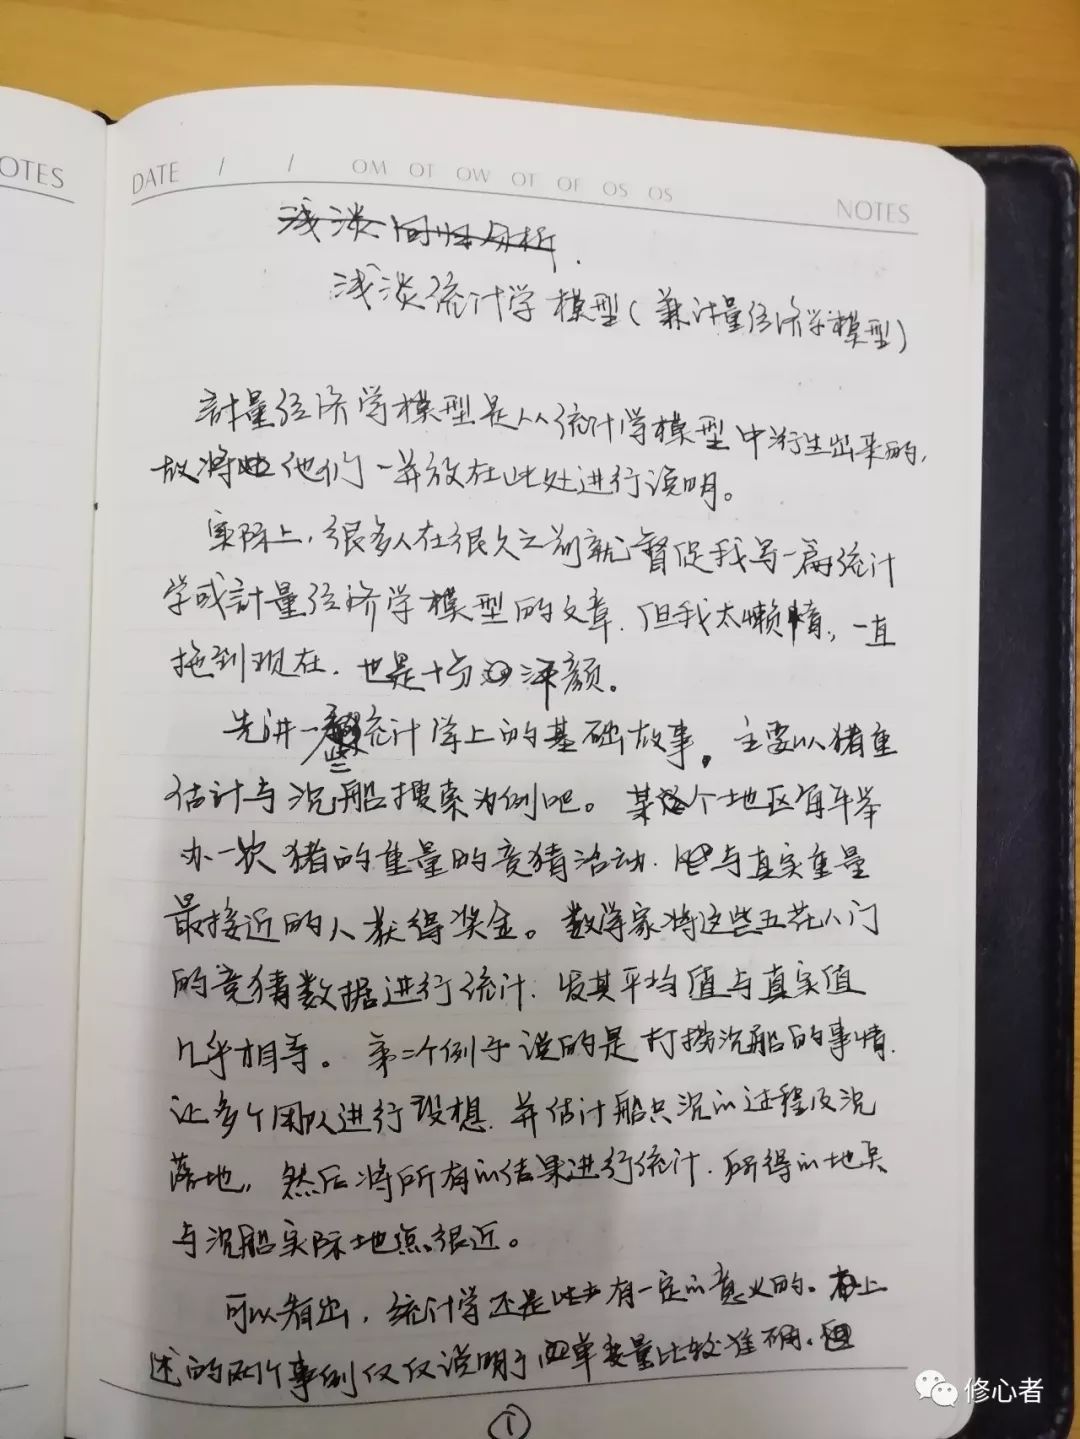 NOTES
DATE / / OM OT OW OT OF OS OS
NOTES
浅谈回归分析
浅谈统计学模型(兼计量经济学模型)
計量经济学模型是从统计学模型中衍生出来的,
故将他们一并放在此处进行说明。
实际上,很多人在很久之前就督促我写一篇统计
学或計量经济学模型的文章.但我太懒惰,一直
拖到现在.也是十分汗颜。
先讲一些统计学上的基础故事。主要以猪重
估计与沉船搜索为例吧。某个地区每年举
办一次猪的重量的竞猜活动.与真实重量
最接近的人获得奖金。数学家将这些五花八门
的竞猜数据进行统计.发其平均值与真实值
几乎相等。第二个例子说的是打捞沉船的事情.
让多个团队进行设想.并估计船只沉的过程及沉
落地,然后将所有的结果进行统计.所得的地点
与沉船实际地点很近。
可以看出,统计学还是有一定的意义的。上
述的两个事例仅仅说明了单变量比较准确.但
①
修心者